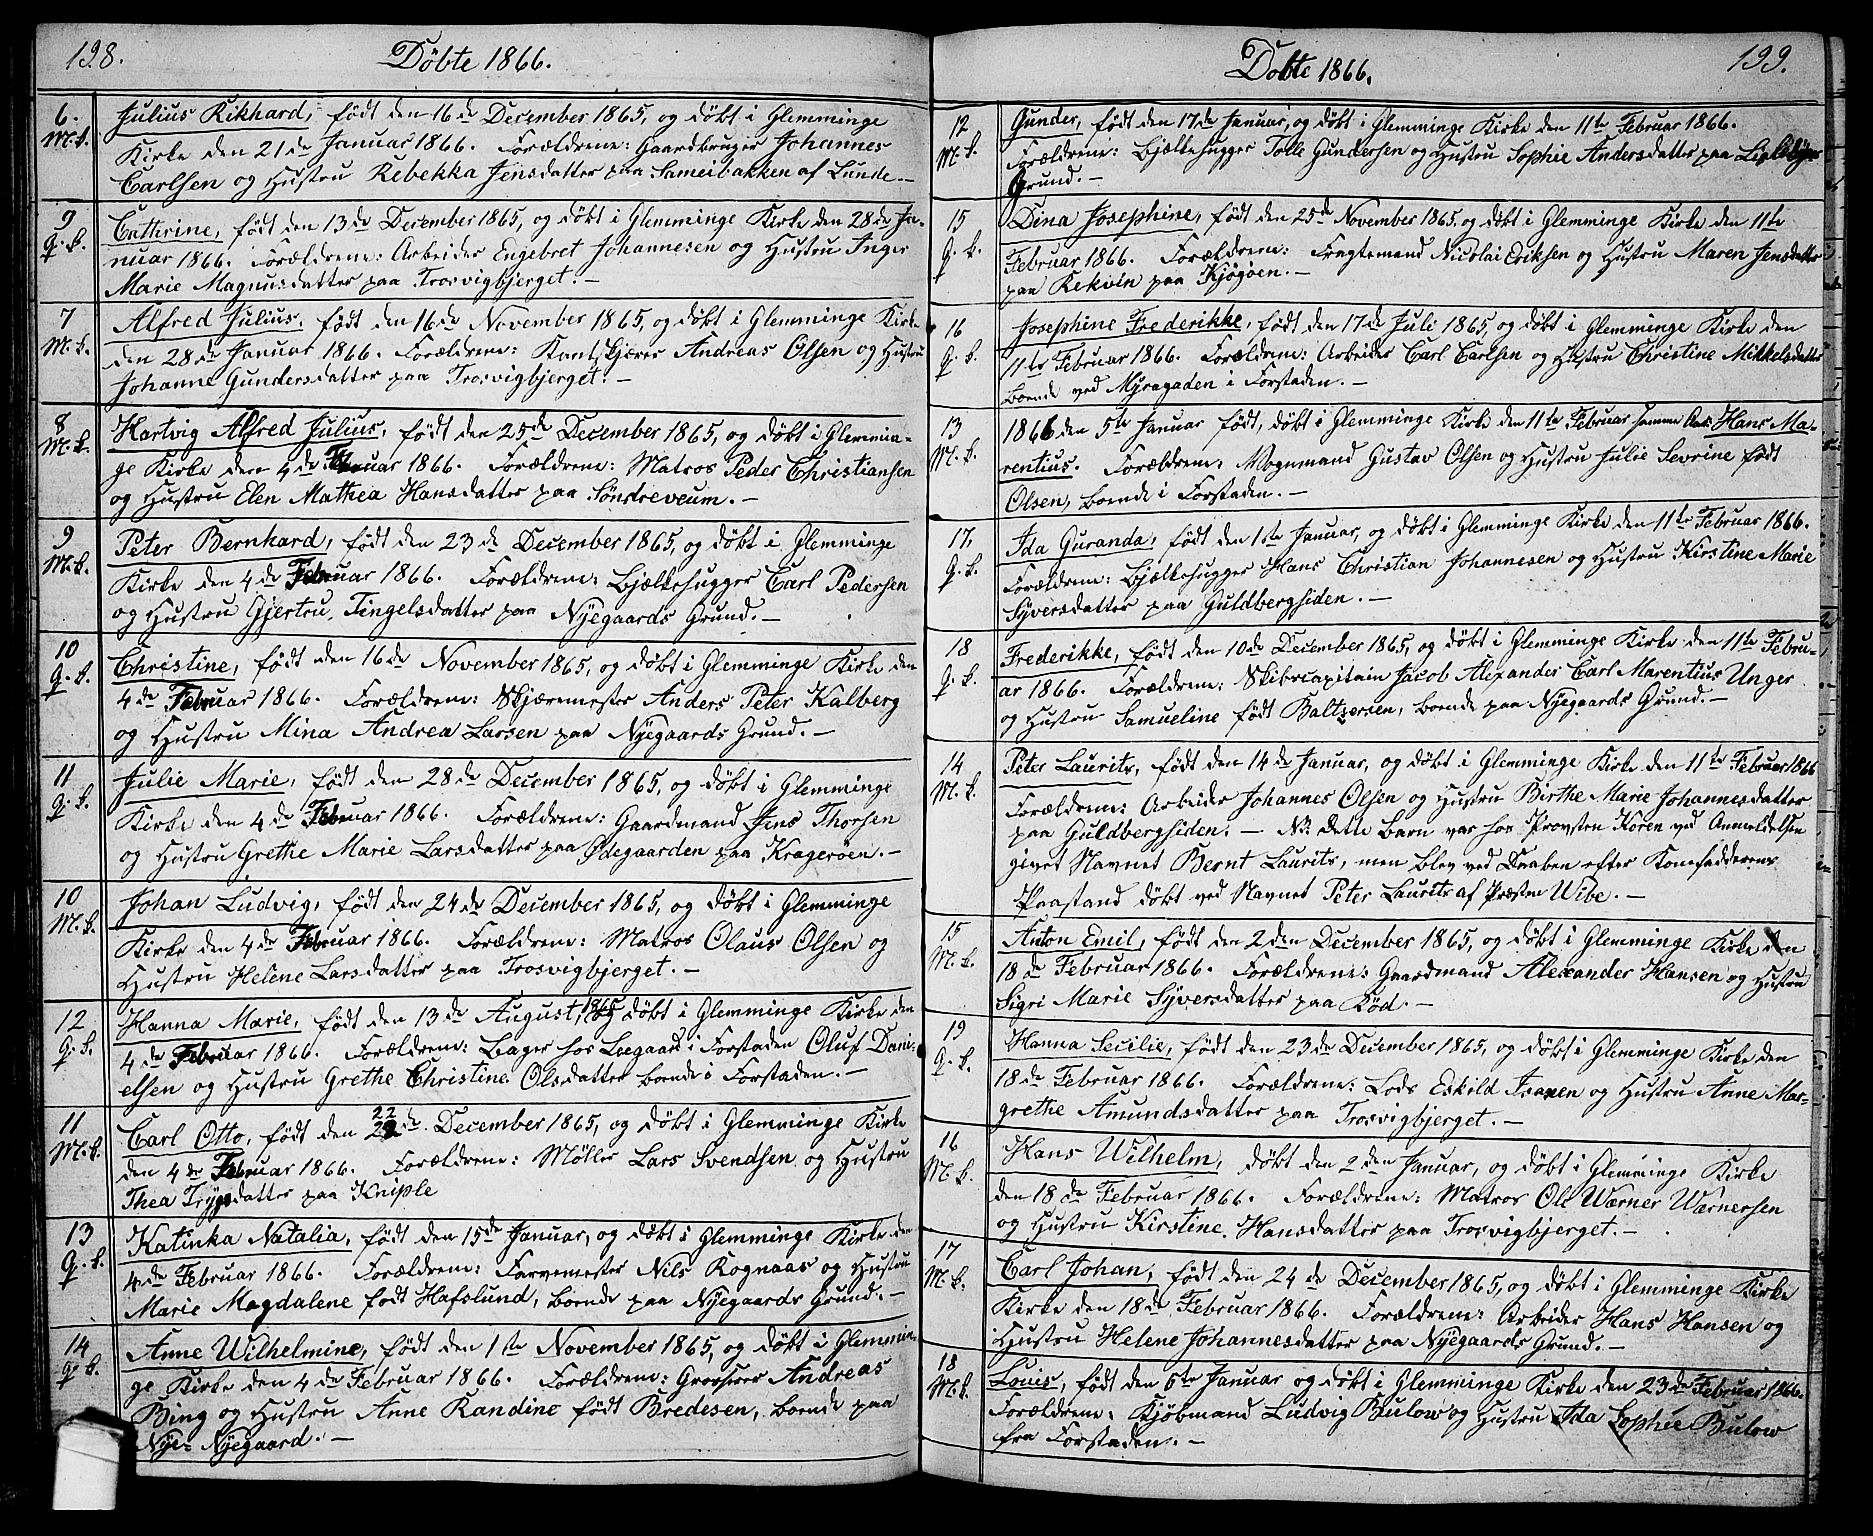 198.
Döbte 1866.
6. Julius Rikhard, født den 16de December 1865, og döbt i Glemminge
M.k. Kirke den 21de Januar 1866. Forældrene: Gaardbruger Johannes
Carlsen og Hustru Rebekka Jensdatter paa Sameibakken af Lunde.-
9 Cathrine, født den 13de December 1865, og döbt i Glemminge Kirke den 28de Ja-
Q.k. nuar 1866. Forældrene: Arbeider Engebret Johannesen og Hustru Inger
Marie Magnusdatter paa Trosvigbjerget.-
7 Alfred Julius, født den 16de November 1865, og döbt i Glemminge Kirke
M.k. den 28de Januar 1866. Forældrene: Kantskjærer Andreas Olsen og Hustru
Johanne Gundersdatter paa Trosvigbjerget.-
8 Hartvig Alfred Julius, født den 25de December 1865, og döbt i Glemmin-
M.k. ge Kirke den 4de Februar 1866. Forældrene: Matros Peder Christiansen
og Hustru Elen Mathea Hansdatter paa Söndreveum.-
9 Peter Bernhard, født den 23de December 1865, og döbt i Glemminge
M.k. Kirke den 4de Februar 1866. Forældrene: Bjælkehugger Carl Pedersen
og Hustru Gjertru Tingelsdatter paa Nyegaards Grund.-
10 Christine, født den 16de November 1865, og döbt i Glemminge Kirke den
Q.k. 4de Februar 1866. Forældrene: Skjæremester Anders Peter Kalberg
og Hustru Mina Andrea Larsen paa Nyegaards Grund.-
11 Julie Marie, født den 28de December 1865, og döbt i Glemminge
Q.k. Kirke den 4de Februar 1866. Forældrene: Gaardmand Jens Thorsen
og Hustru Grethe Marie Larsdatter paa Ødegaarden paa Kragerøen.-
10 Johan Ludvig, født den 24de December 1865, og döbt i Glemminge
M.k. Kirke den 4de Februar 1866. Forældrene: Matros Olaus Olsen og
Hustru Helene Larsdatter paa Trosvigbjerget.-
12 Hanna Marie, født den 13de August 1865 og döbt i Glemminge Kirke den
Q.k. 4de Februar 1866. Forældrene: Bager hos Leegaard i Forstaden Oluf Dani-
elsen og Hustru Grethe Christine Olsdatter boende i Forstaden.-
11 Carl Otto, født den 22de December 1865, og döbt i Glemminge Kirke
M.k. den 4de Februar 1866. Forældrene: Møller Lars Svendsen og Hustru
Thea Trygsdatter paa Kniple
13 Katinka Natalia, født den 15de Januar, og döbt i Glemminge Kirke den
Q.k. 4de Februar 1866. Forældrene: Farvemester Nils Rognaas og Hustru
Marie Magdalene født Hafslund, boende paa Nyegaards Grund.-
14 Anne Wilhelmine, født den 1ste November 1865, og döbt i Glemmin-
Q.k. ge Kirke den 4de Februar 1866. Forældrene: Grosserer Andreas
Bing og Hustru Anne Randine født Bredesen, boende paa
Nye-Nyegaard.-
199.
Döbte 1866.
12 Gunder, født den 17de Januar, og döbt i Glemminge Kirke den 11te Februar 1866.
M.k. Forældrene: Bjælkehugger Tolle Gundersen og Hustru Sophie Andersdatter paa Lislebyes
Grund.-
15 Dina Josephine, født den 25de November 1865, og döbt i Glemminge Kirke den 11te
Q.k. Februar 1866. Forældrene: Fragtemand Nicolai Eriksen og Hustru Maren Jensdatter
paa Rekvin paa Kjøgøen.-
16 Josephine Frederikke, født den 17de Juli 1865, og döbt i Glemminge Kirke den
Q.k. 11te Februar 1866. Forældrene: Arbeider Carl Carlsen og Hustru Christine Mikkelsdatter
boende ved Myragaden i Forstaden.-
13 1866 den 5te Januar født, döbt i Glemminge Kirke den 11te Februar samme Aar: Hans Ma-
M.k. rentius. Forældrene: Vognmand Gustav Olsen og Hustru Julie Sevrine født
Olsen, boende i Forstaden.-
17. Ida Guranda, født den 1ste Januar, og döbt i Glemminge Kirke den 11te Februar 1866.
Q.k. Forældrene: Bjælkehugger Hans Christian Johannesen og Hustru Kirstine Marie
Syversdatter paa Guldbergsiden.-
18 Frederikke, født den 10de December 1865, og döbt i Glemminge Kirke den 11te Febru-
Q.k. ar 1866. Forældrene: Skibscapitain Jacob Alexander Carl Marentius Unger
og Hustru Samueline født Baltzersen, boende paa Nyegaards Grund.-
14 Peter Laurits, født den 14de Januar, og döbt i Glemminge Kirke den 11te Februar 1866
M.k. Forældrene: Arbeider Johannes Olsen og Hustru Birthe Marie Johannesdatter
paa Guldbergsiden.- NB: dette Barn var hos Provsten Koren ved Anmeldelsen
givet Navnet Bernt Laurits, men blev ved Daaben efter Konefadderens
Paastand döbt ved Navnet Peter Laurits af Præsten Wibe.-
15 Anton Emil, født den 2den December 1865, og döbt i Glemminge Kirke den
M.k. 18de Februar 1866. Forældrene: Gaardmand Alexander Hansen og Hustru
Sigri Marie Syversdatter paa Rød.-
19 Hanna Secilie, født den 23de December 1865, og döbt i Glemminge Kirke den
Q.k. 18de Februar 1866. Forældrene: Lods Eskild Isaxen og Hustru Anne Mar-
grethe Amundsdatter paa Trosvigbjerget.-
16 Hans Wilhelm, döbt den 2den Januar, og döbt i Glemminge Kirke
M.k. den 18de Februar 1866. Forældrene: Matros Ole Wærner Wærnersen
og Hustru Kirstine Hansdatter paa Trosvigbjerget.-
17 Carl Johan, født den 24de December 1865, og döbt i Glemminge Kirke
M.k. Kirke den 18de Februar 1866. Forældrene: Arbeider Hans Hansen og
Hustru Helene Johannesdatter paa Nyegaards Grund.-
18 Louis, født den 6te Januar og döbt i Glemminge Kirke den 23de Februar 1866.
M.k. Forældrene: Kjøbmand Ludvig Bulow og Hustru Ida Sophie Bulow
fra Forstaden.-